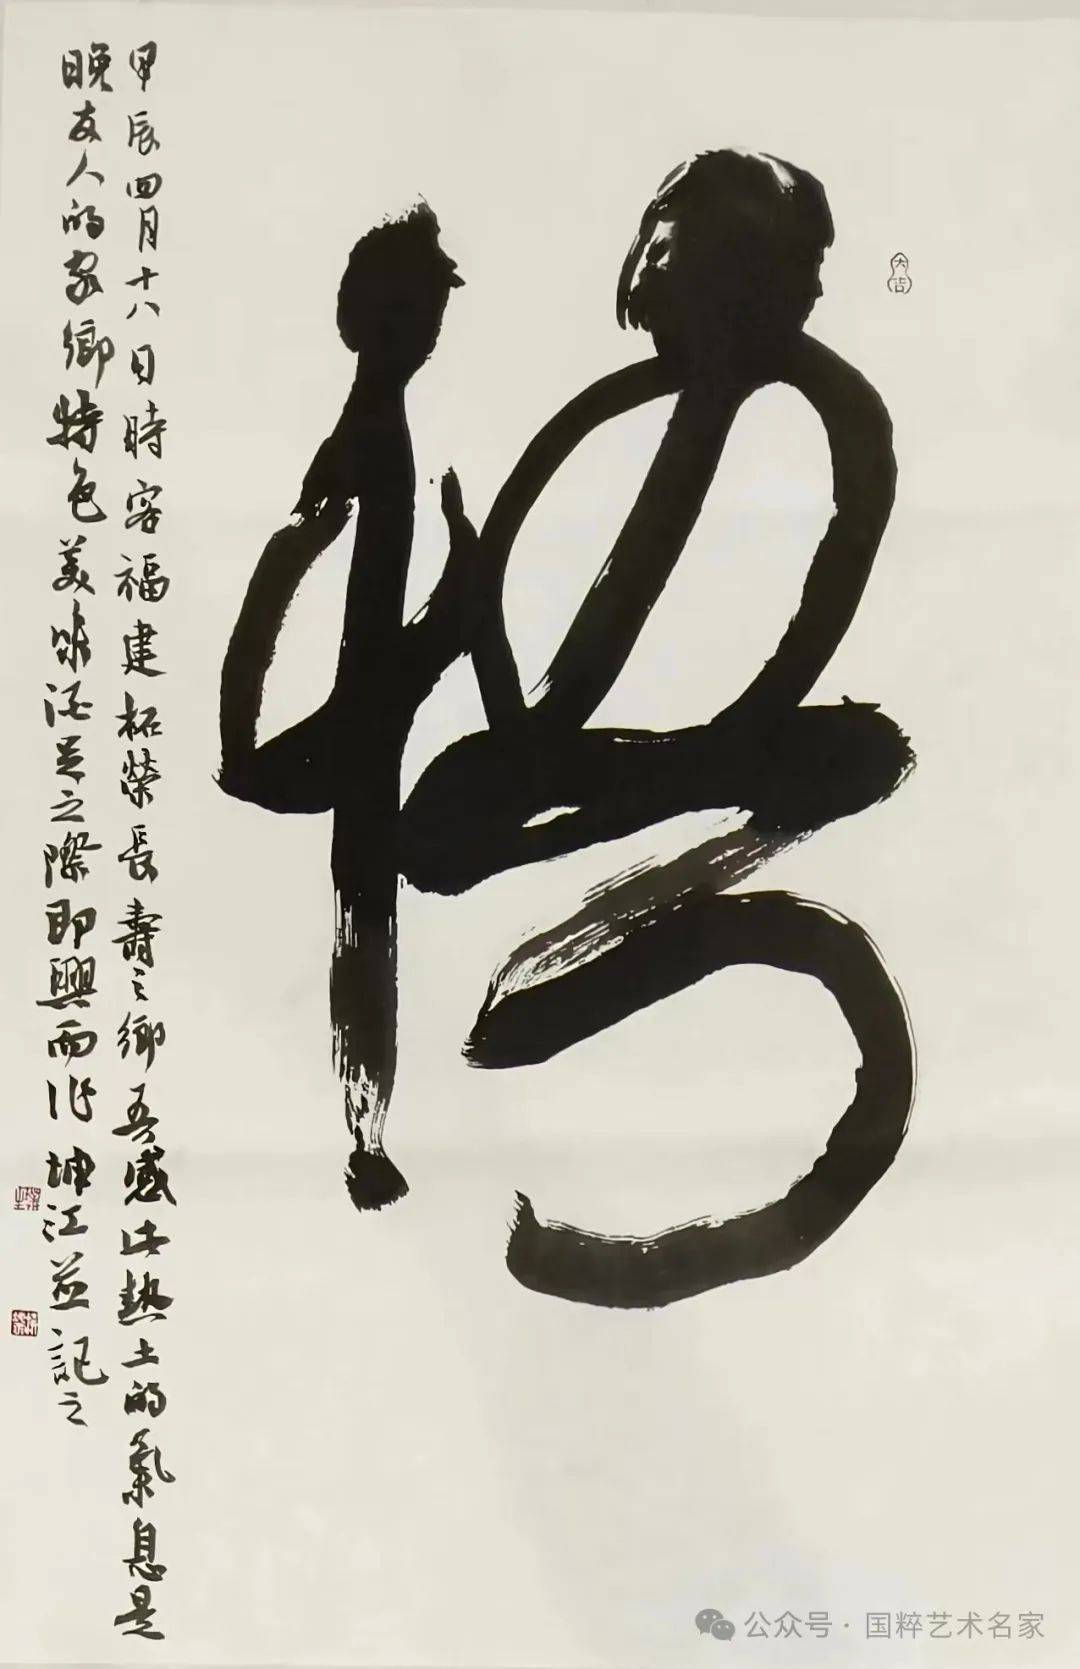 大吉
甲辰四月十八日時客福建柘榮長壽之鄉吾感此熱土的氣息是
晚友人的家鄉特色美味酒足之際即興而作 坤江並記之
公众号 · 国粹艺术名家